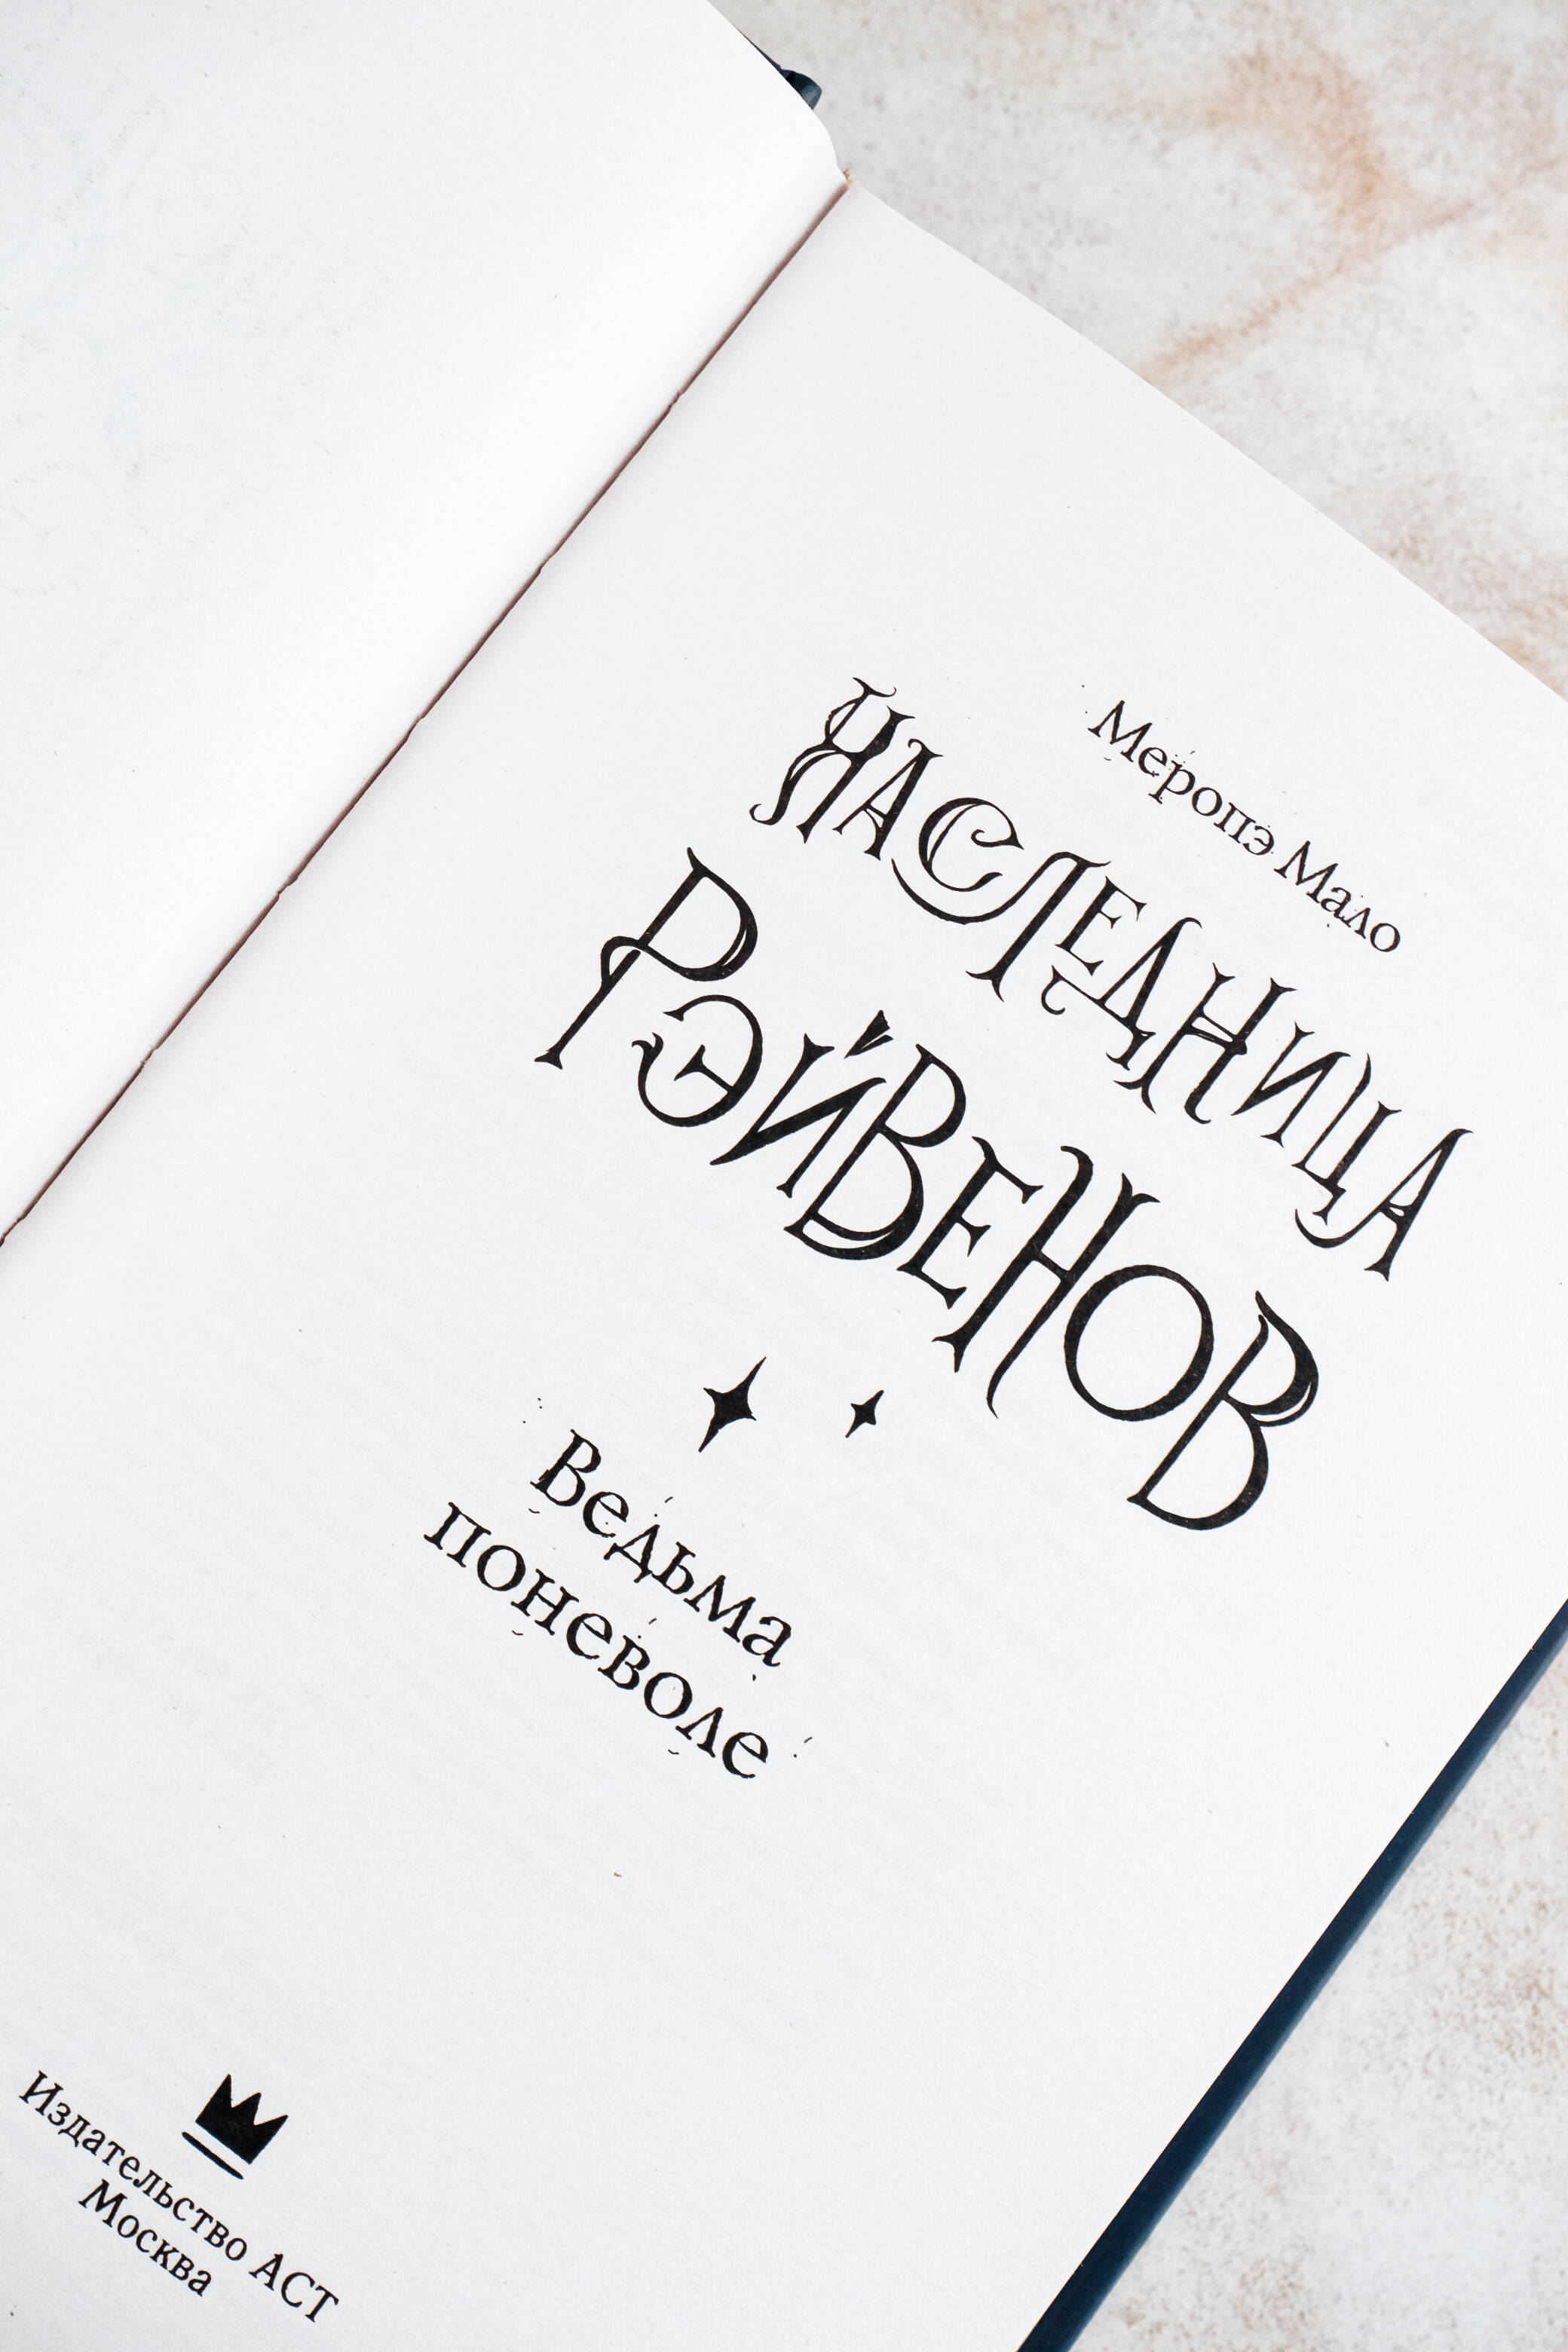 Меропэ Мало
НАСЛЕДНИЦА
РЭЙВЕНОВ
Ведьма
поневоле
Издательство АСТ
Москва